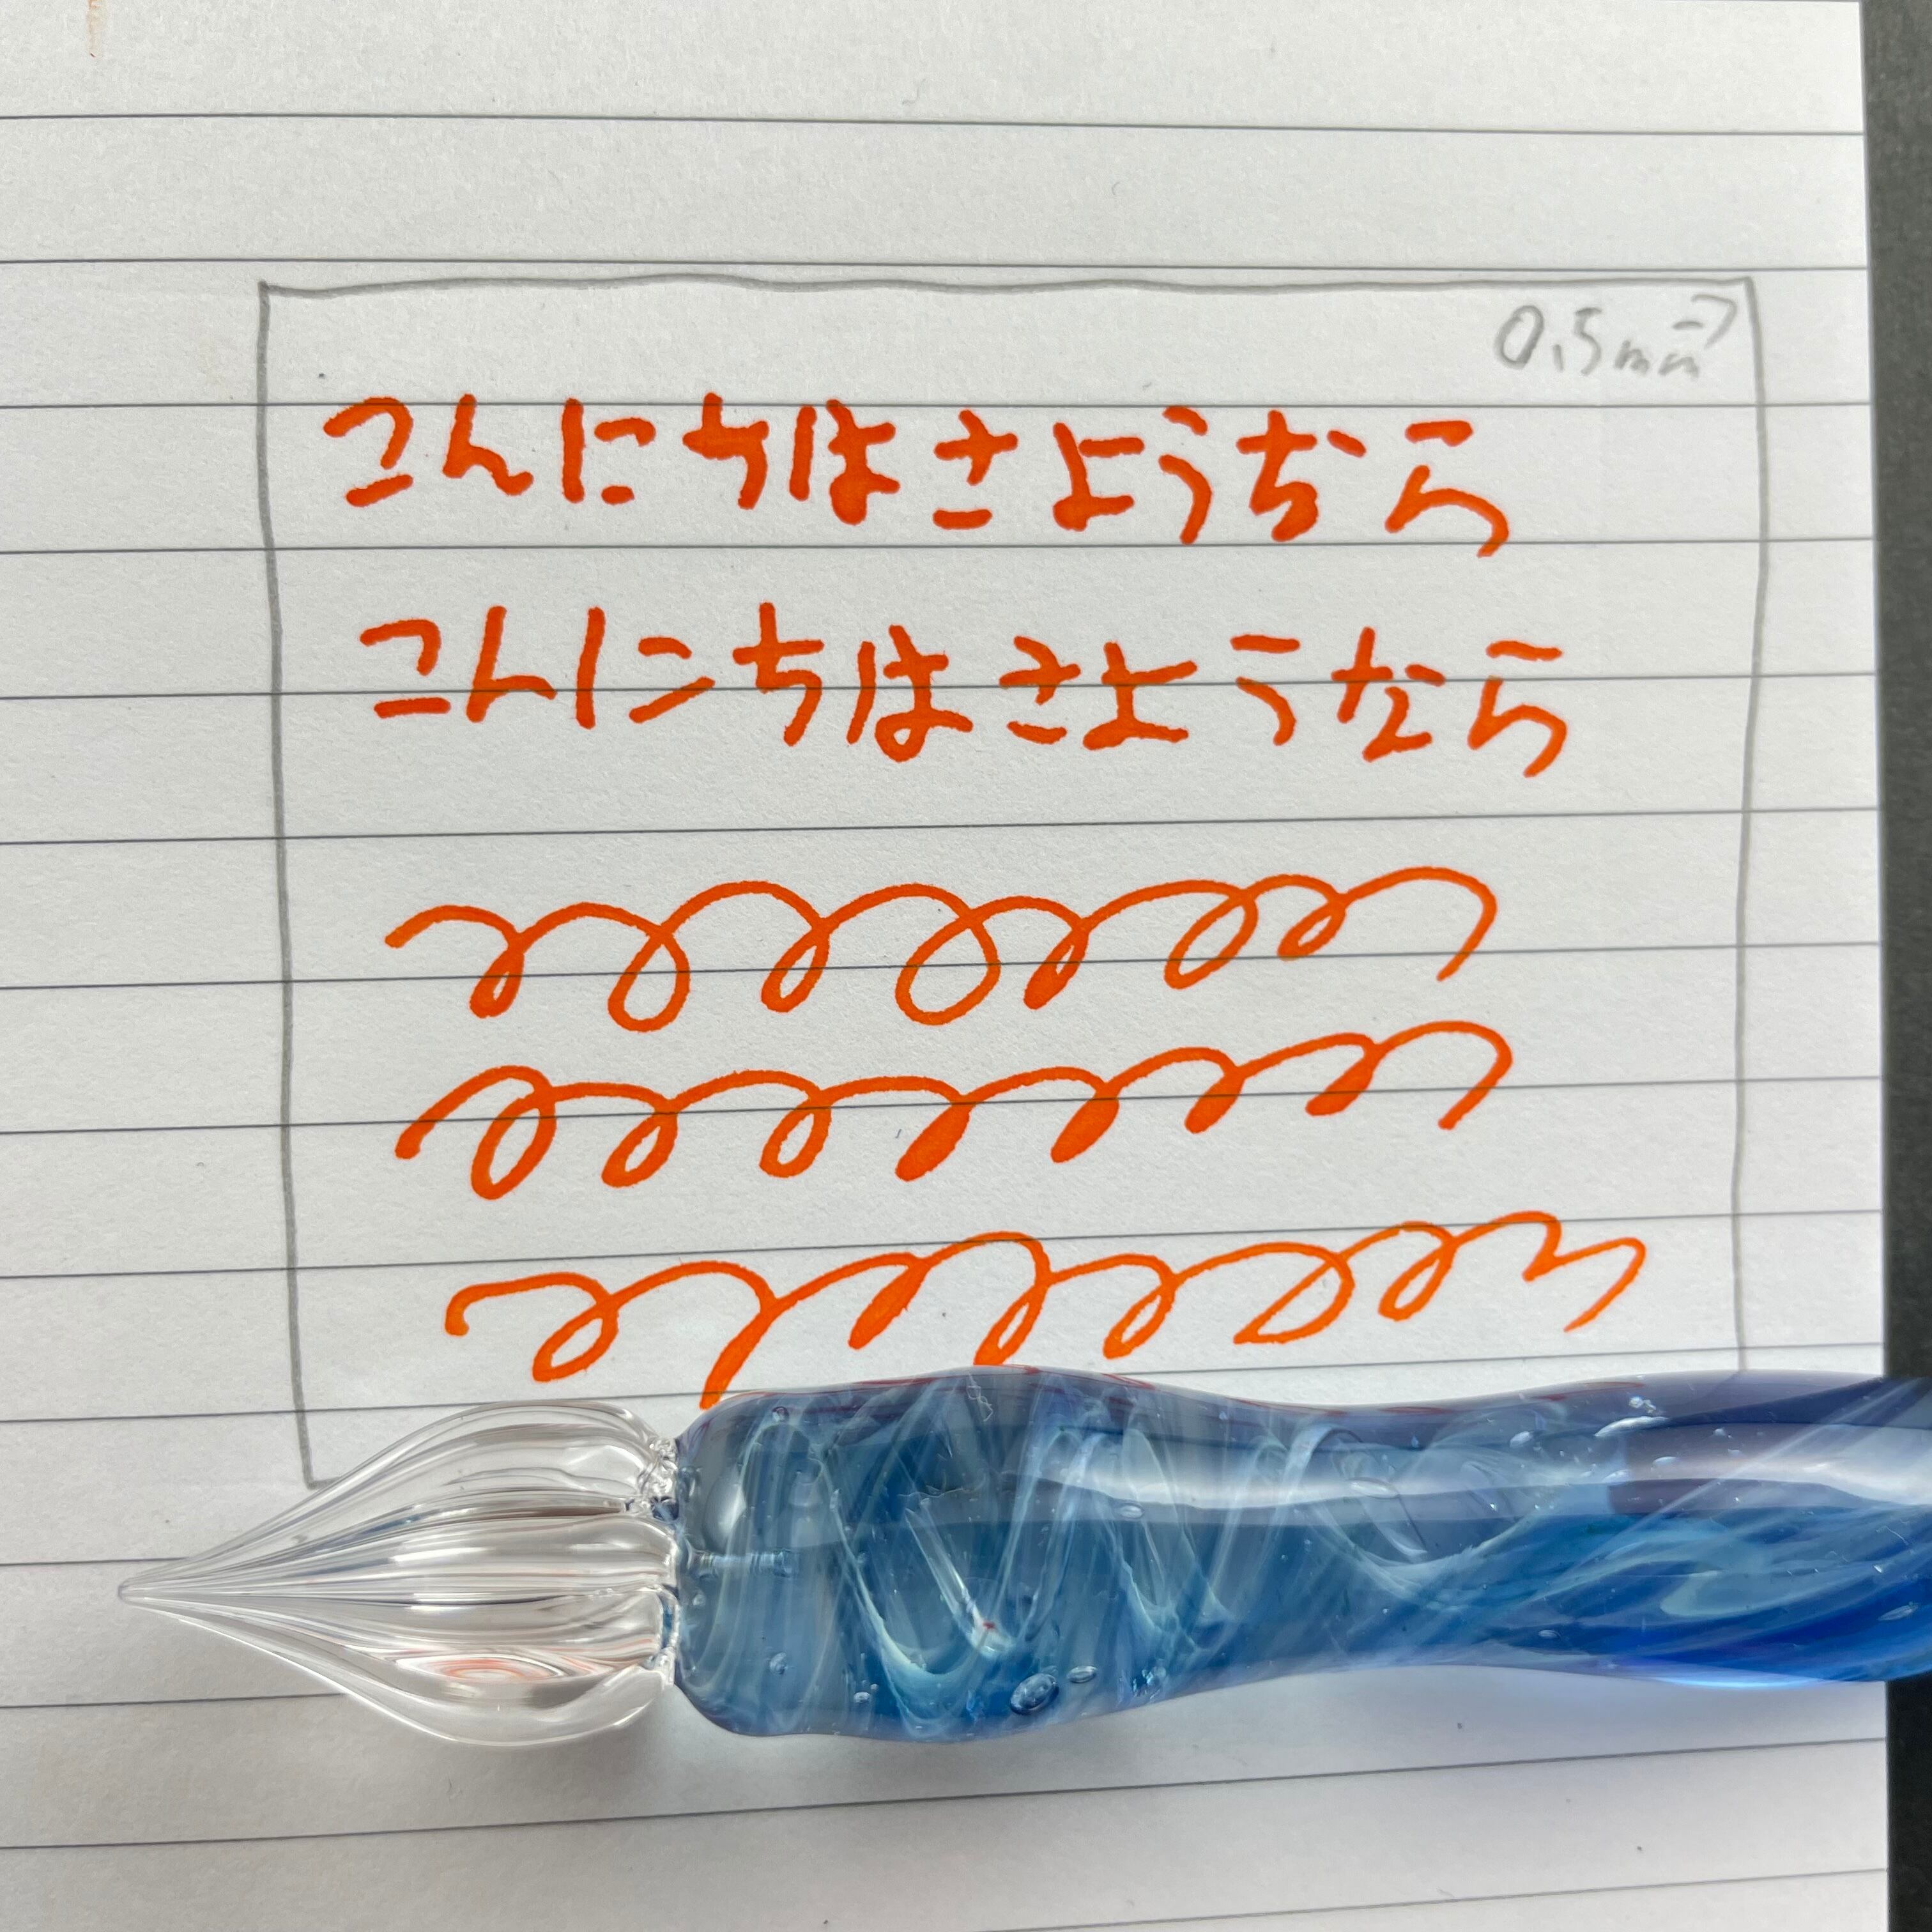 0.5mm→
こんにちはさようなら
こんにちはさようなら